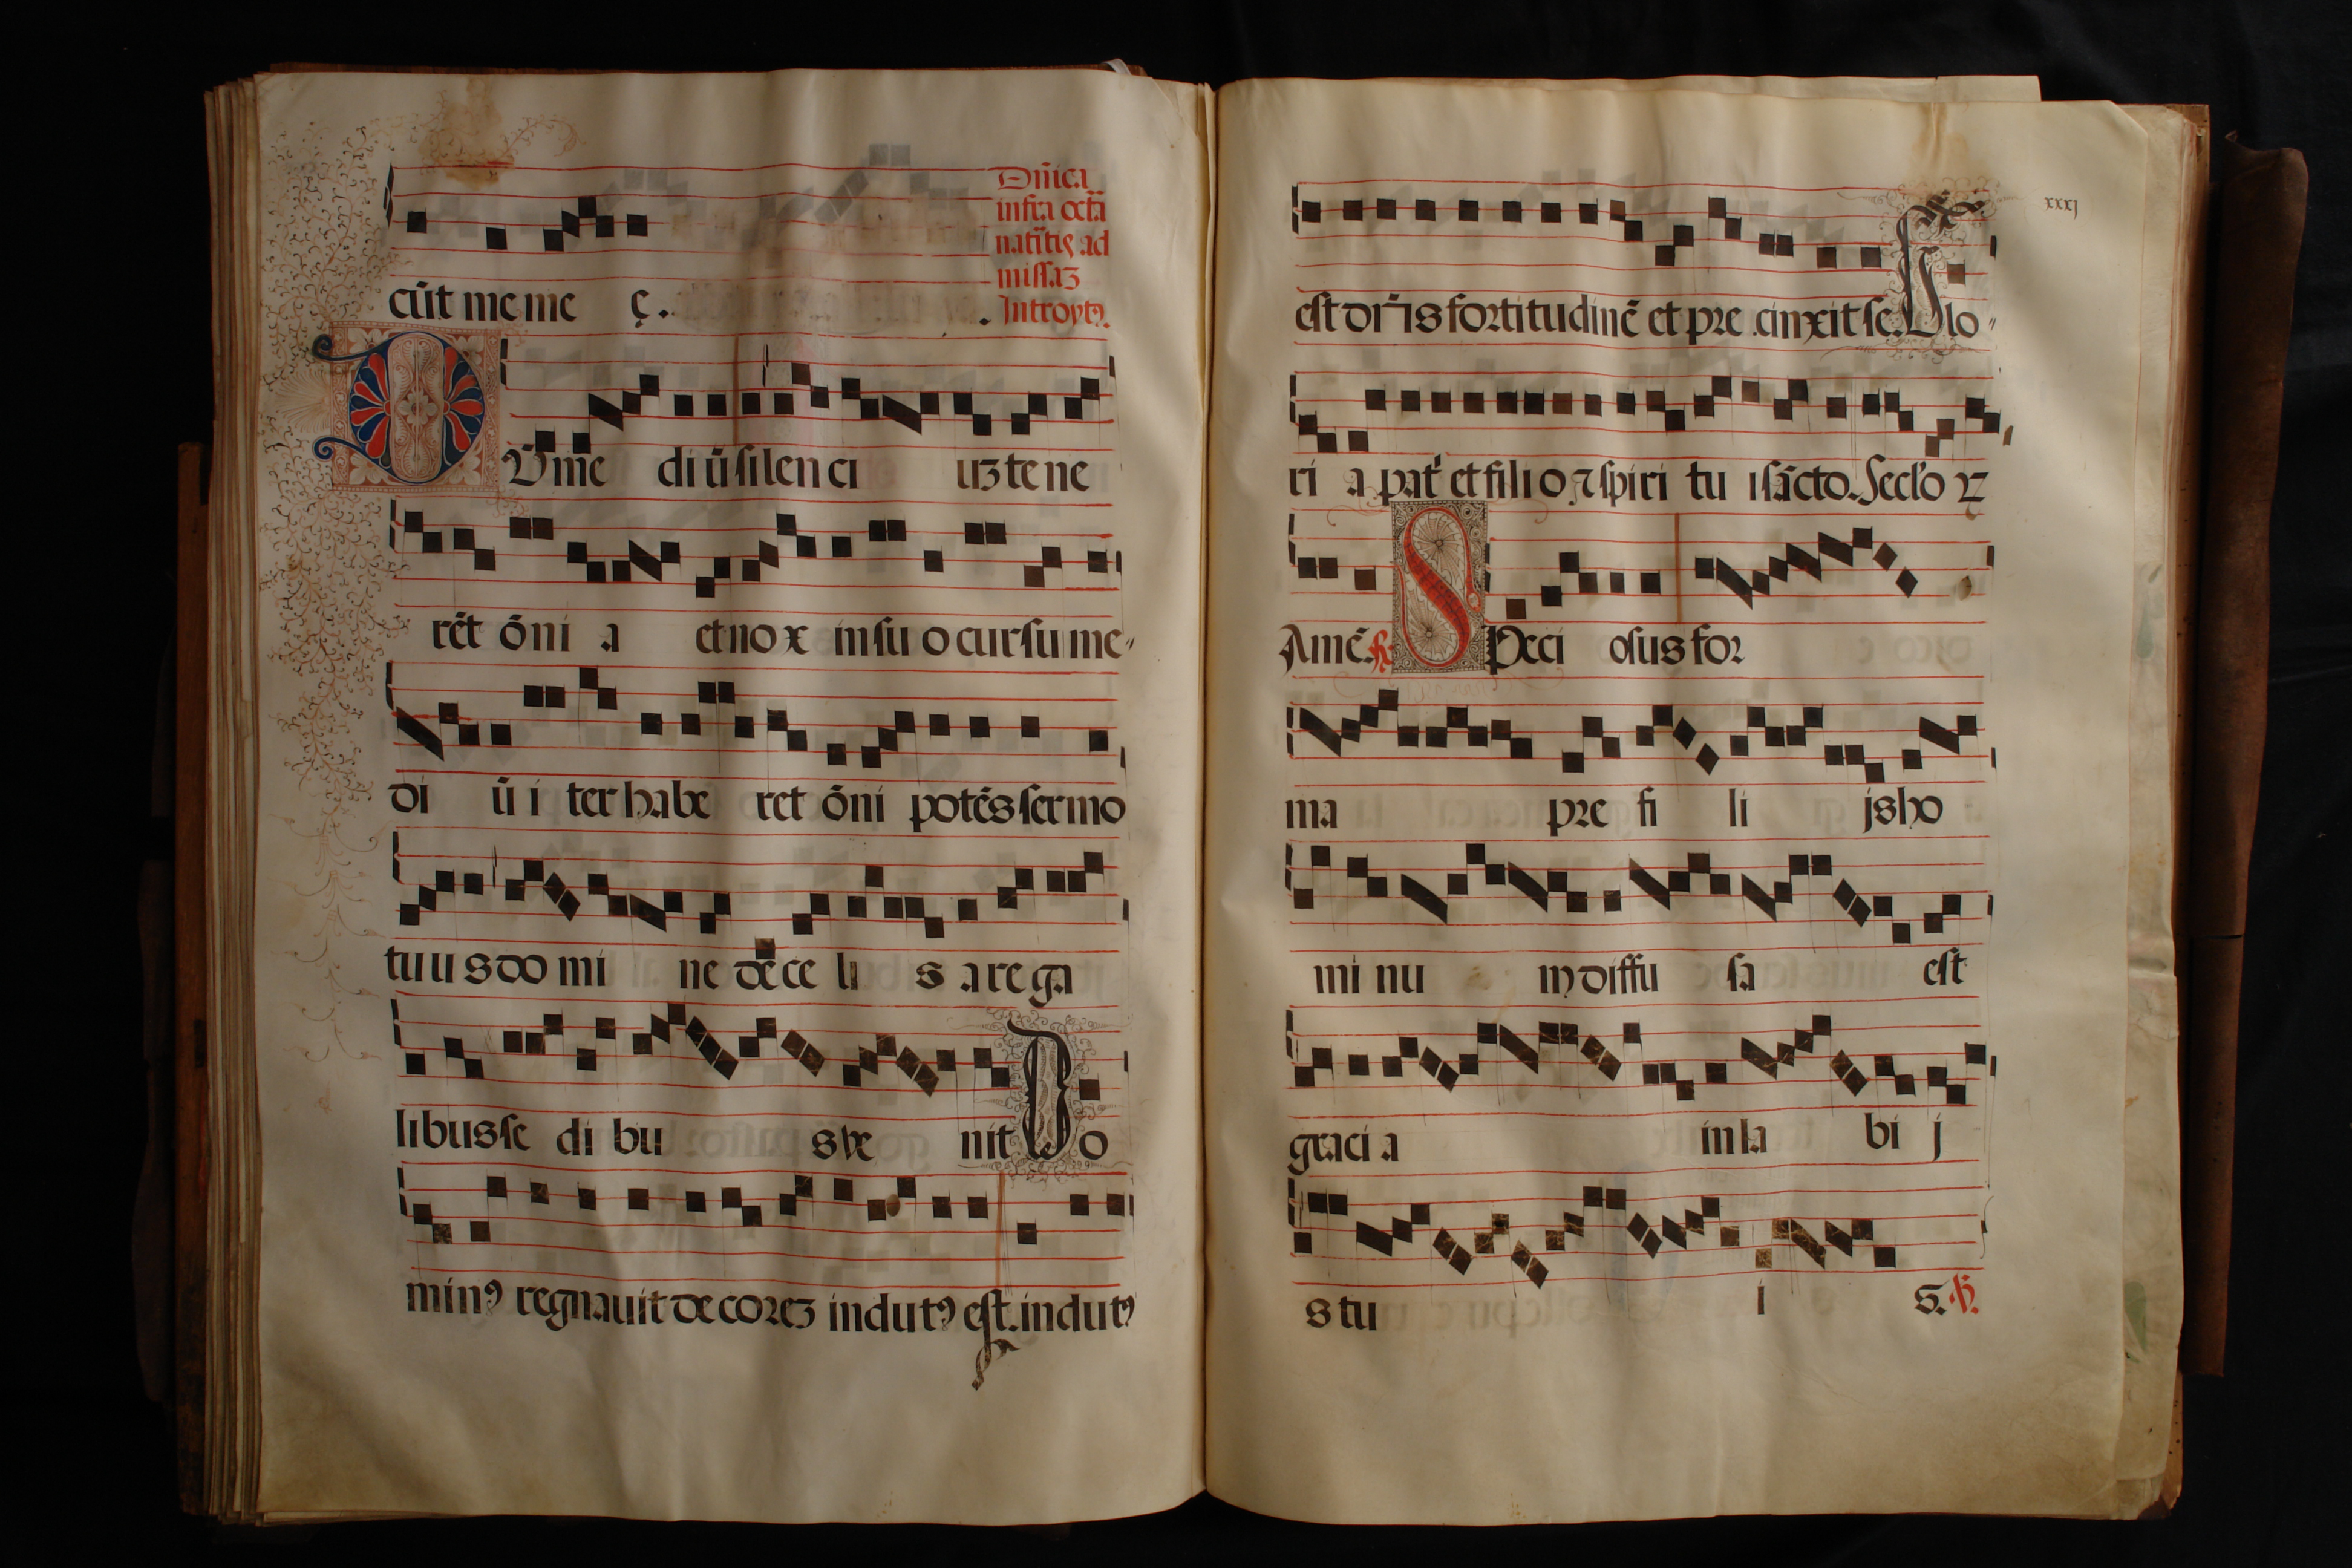 cūt me me ę.
Dn̄ica
infra octā
natītis ad
missaʒ
Introytꝰ.
DVm me diū silen ci uʒ te ne
rēt ōni a et nox in su o cursu me
di ū i ter habe ret ōni potēs sermo
tuus do mi ne de ce li s a re ga
libus se di bu s ve nit Do
minꝰ regnauit decoreʒ indutꝰ est. indutꝰ
xxxj
est dn̄s fortitudinē et pre cinxit se. Glo
ri a pat' et filio ⁊ spiri tu i sācto. Secl'o ꝝ
Amē. R. SPeci osus for
ma pre fi li js ho
mi nu m diffu sa est
graci a in la bi j
s tu i s. V.